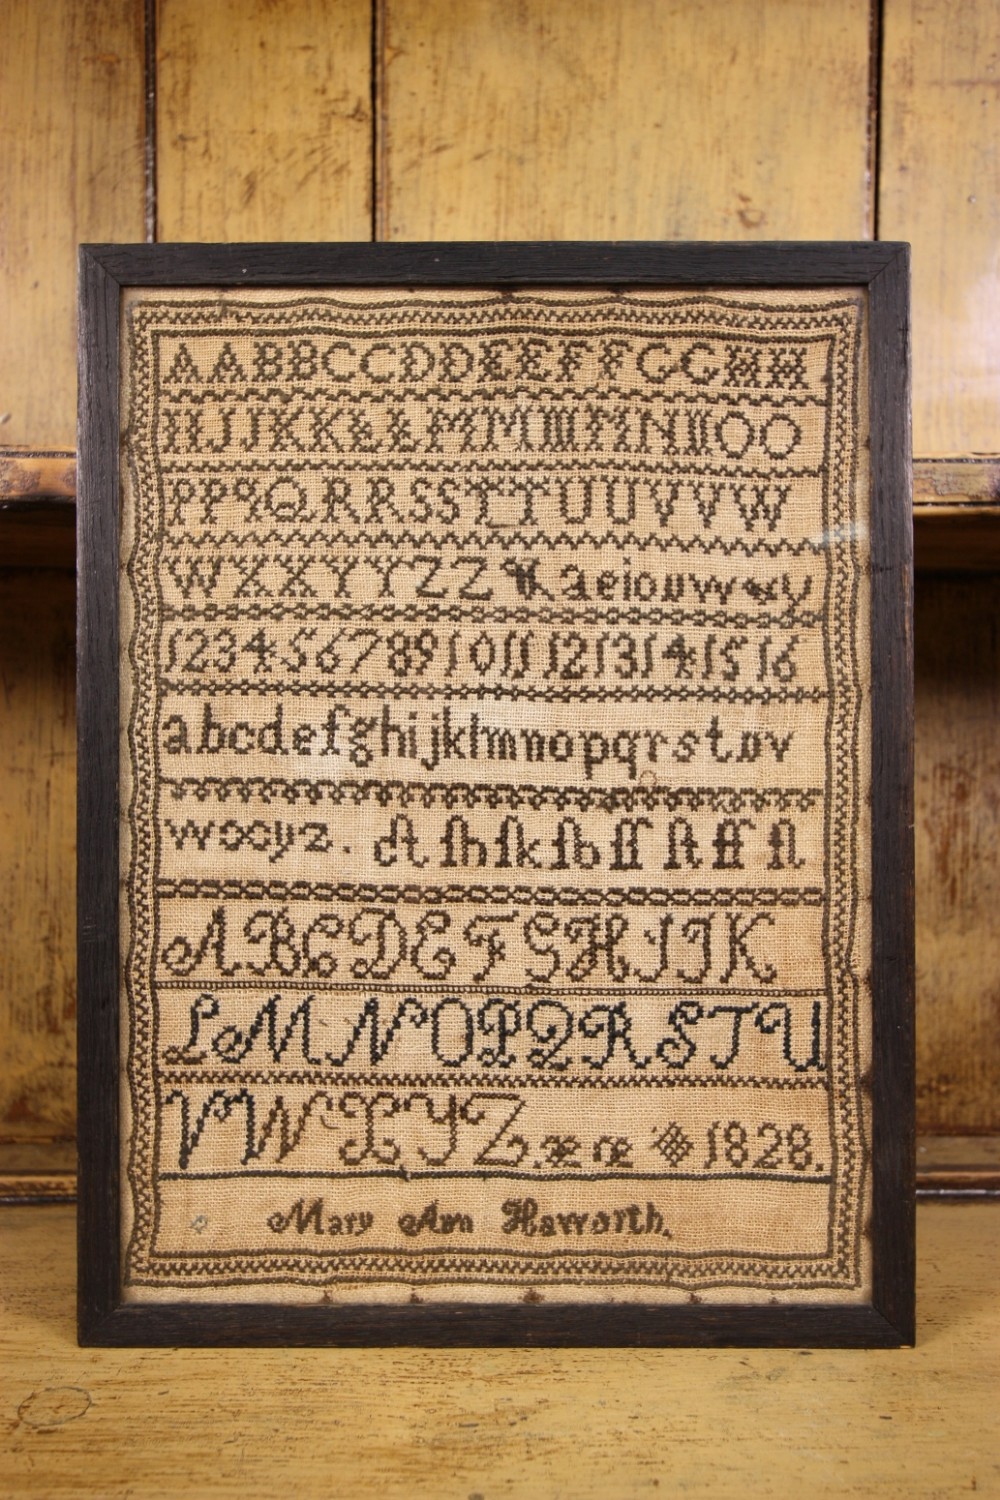 AABBCCDDEEFFGGHH
IIJJKKLLMMMNNOO
PPQQRRSSTTUUVVW
WXXYYZZ & aeiouwxy
12345678910111213141516
abcdefghijklmnopqrstuv
wxyz. ct ſh ſk ſb ſſ ſi ff fl
ABCDEFGHIJK
LMNOPQRSTU
VWXYZ. æ œ 1828.
Mary Ann Haworth.